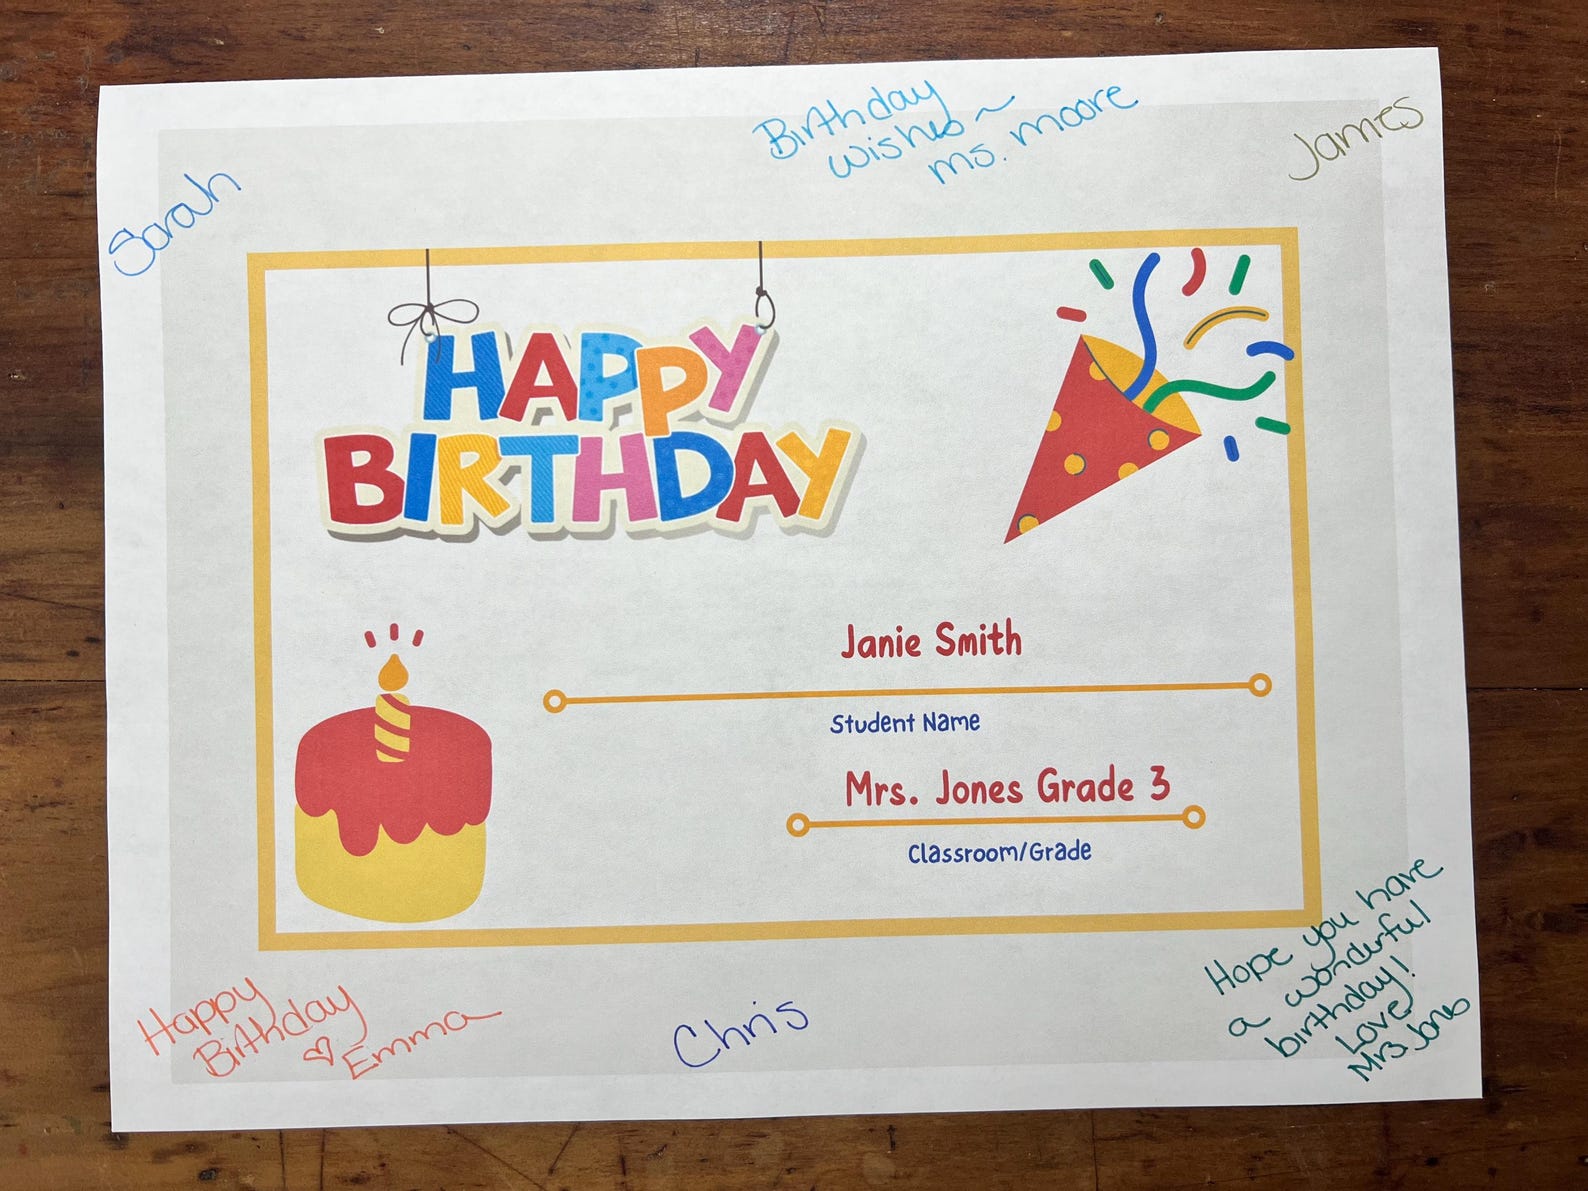 Birthday
wishes ~
ms. moore
James
Sarah
HAPPY
BIRTHDAY
Janie Smith
Student Name
Mrs. Jones Grade 3
Classroom/Grade
Happy
Birthday
♡ Emma
Chris
Hope you have
a wonderful
birthday!
Love
Mrs. Jones